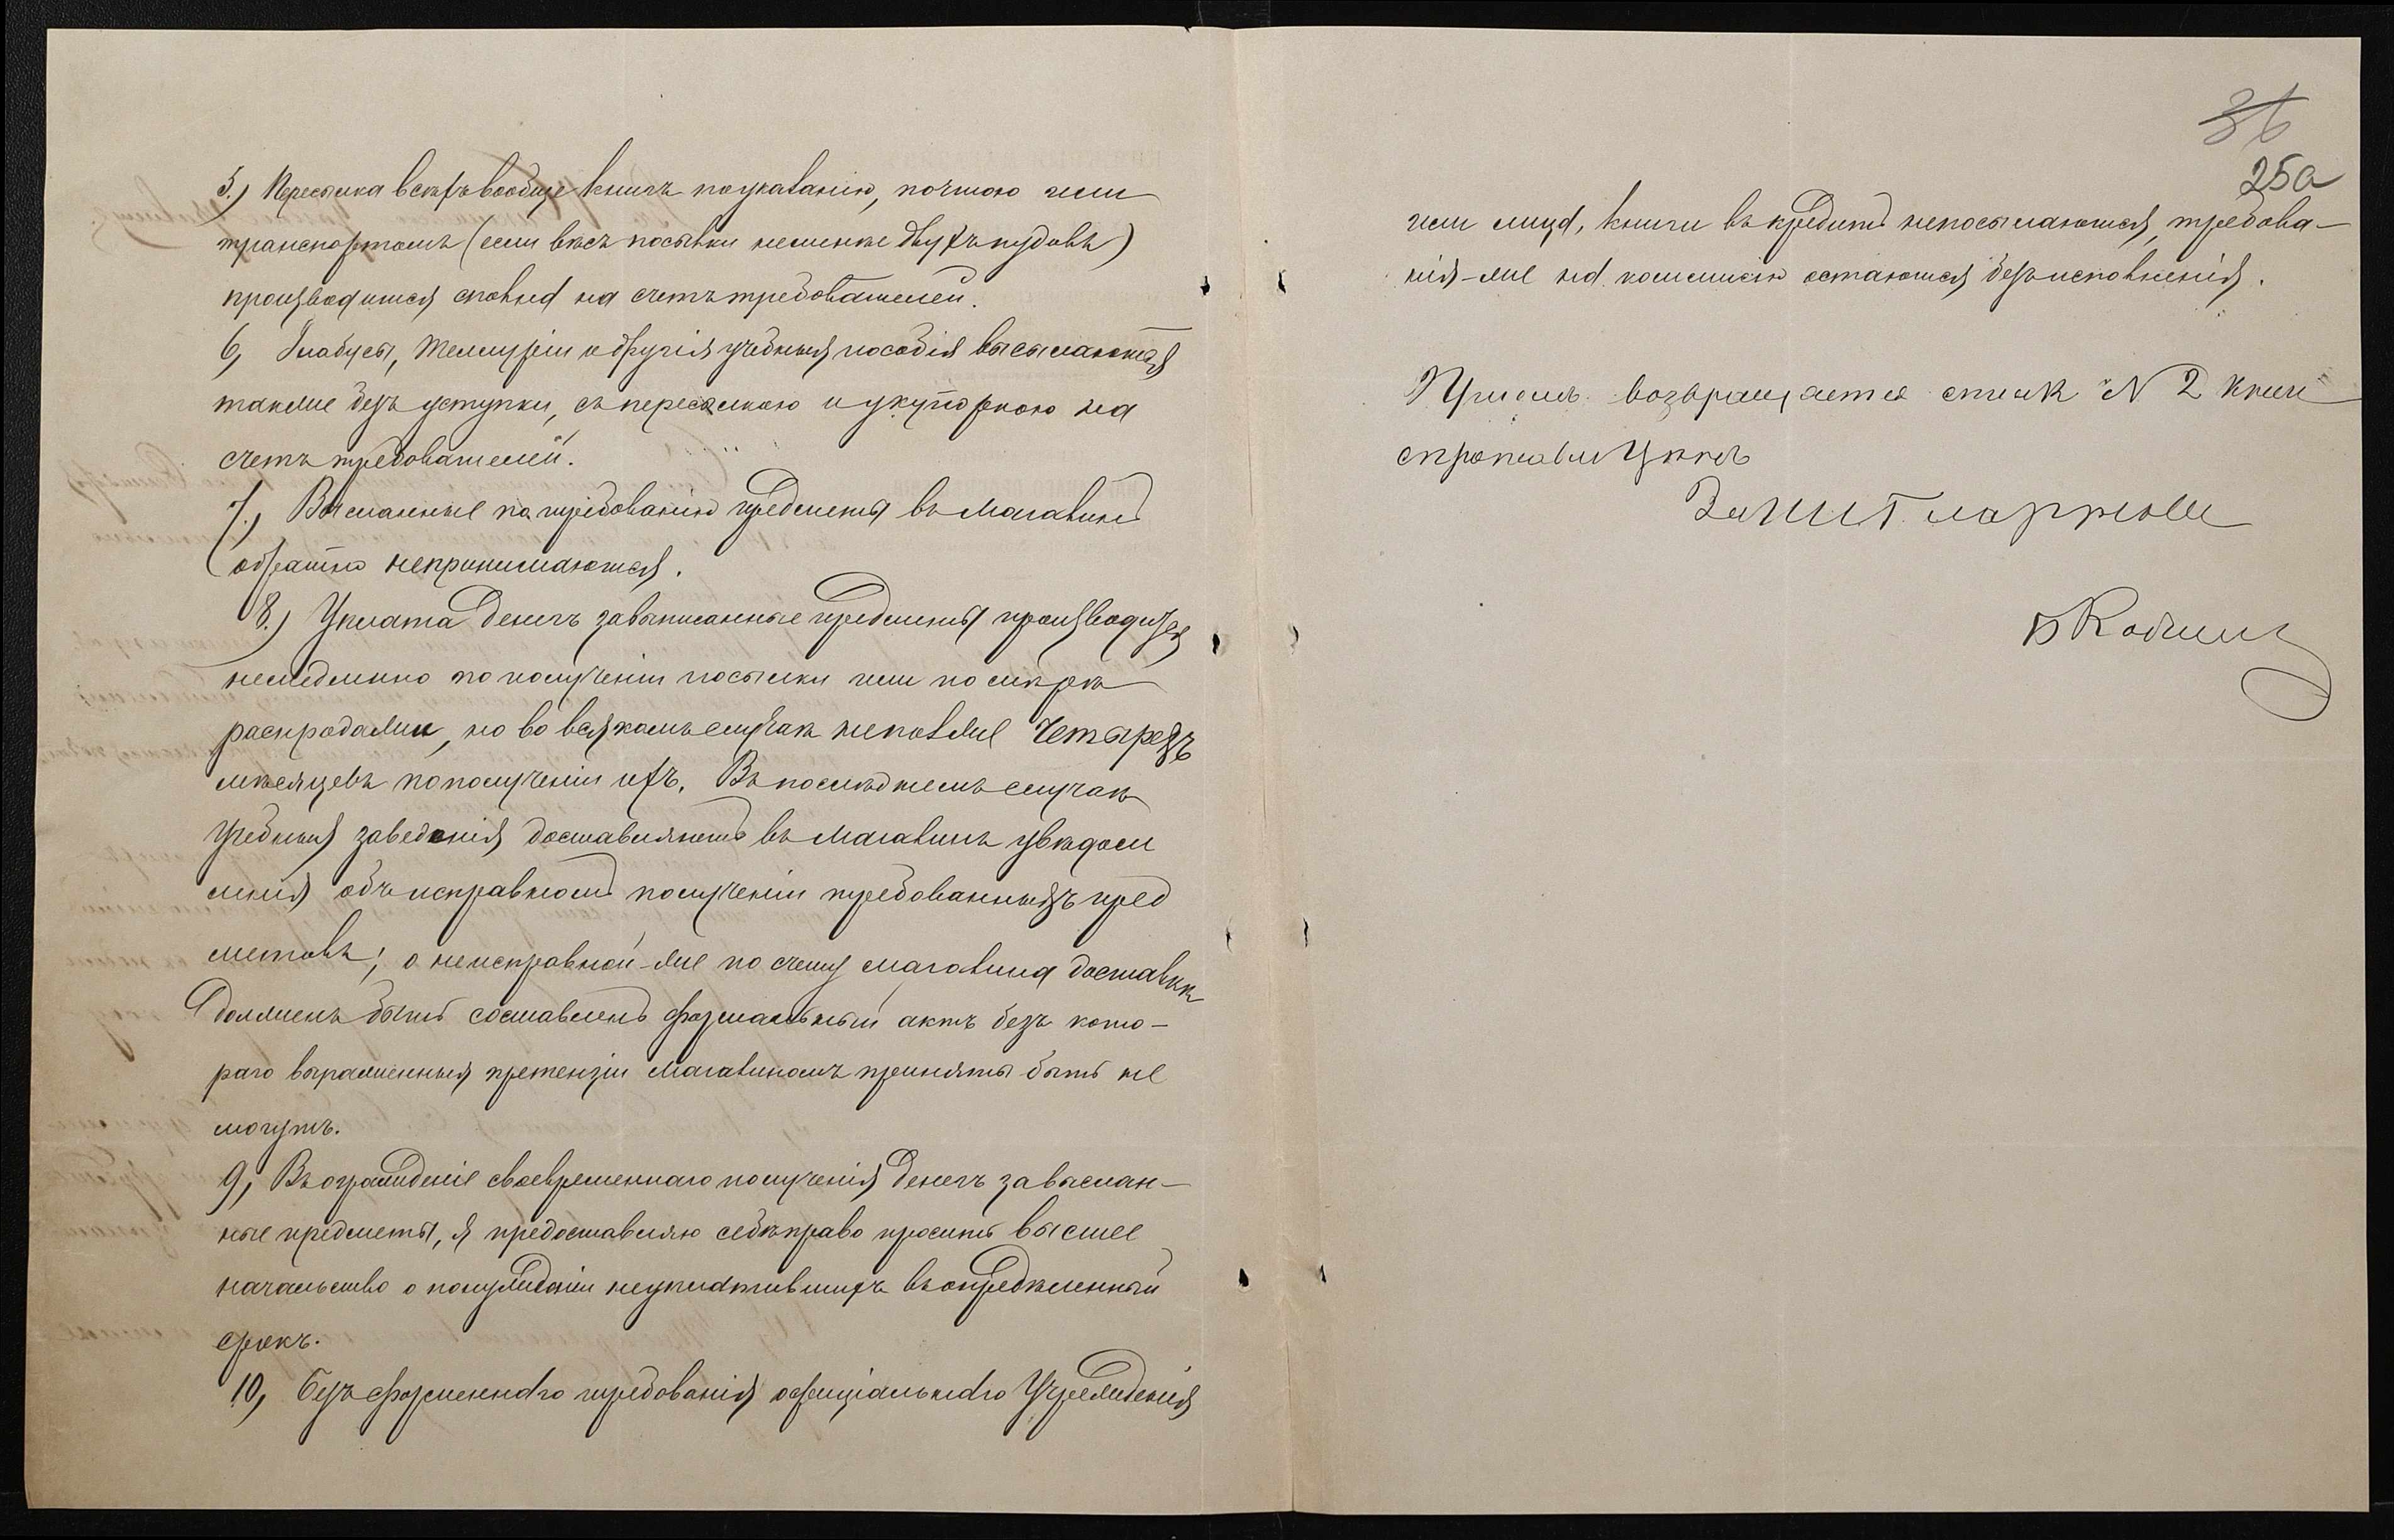 5.) Пересылка всѣхъ вообще книгъ по указанію, почтою или
транспортомъ (если вѣсъ посылки неменѣе двухъ пудовъ)
производится сполна на счетъ требователей.
6, Глобусы, Теллуріи и другія учебныя пособія высылаются
также безъ уступки, съ пересылкою и укупоркою на
счетъ требователей.
7.) Высланные по требованію предметы въ магазинъ
обратно непринимаются.
8.) Уплата денегъ за выписанные предметы производится
немедленно по полученіи посылки или по мѣрѣ
распродажи, но во всякомъ случаѣ непозже четырехъ
мѣсяцевъ по полученіи ихъ. Въ послѣднемъ случаѣ
учебныя заведенія доставляютъ въ магазинъ увѣдом
ленія объ исправномъ полученіи требованныхъ пред
метовъ; о неисправной-же по счету магазина доставкѣ
долженъ быть составленъ формальный актъ безъ кото-
раго выраженныя претензіи магазиномъ приняты быть не
могутъ.
9, Въ огражденіе своевременнаго полученія денегъ за выслан-
ные предметы, я предоставляю себѣ право просить высшее
начальство о понужденіи неуплатившихъ въ опредѣленный
срокъ.
10, Безъ форменнаго требованія оффиціальнаго Учрежденія
36
25а
или лица, книги въ кредитъ непосылаются, требова-
нія-же на коммисію остаются безъ исполненія.
возвращается списокъ N 2 книгъ